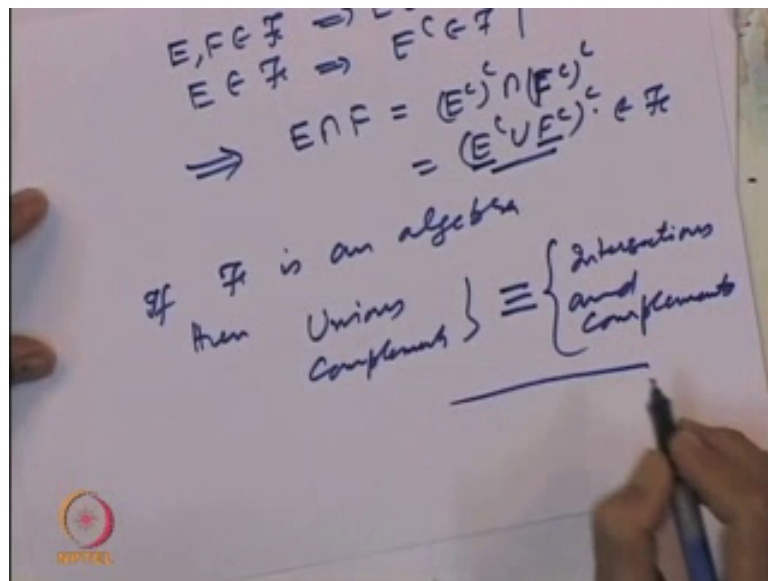 E, F ∈ F ⇒ E
E ∈ F ⇒ E^c ∈ F
⇒ E ∩ F = (E^c)^c ∩ (F^c)^c
= (E^c ∪ F^c)^c ∈ F
If F is an algebra
then Unions Complements } ≡ { Intersections and Complements
NPTEL